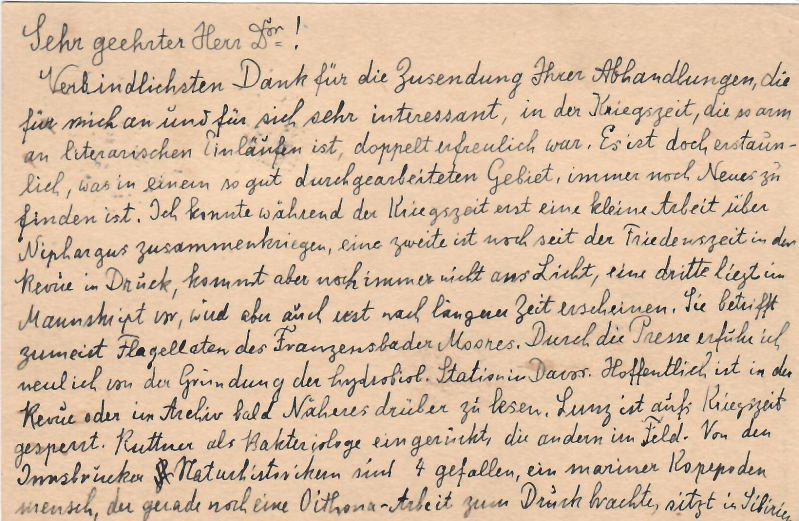 Sehr geehrter Herr Dor!
Verbindlichsten Dank für die Zusendung Ihrer Abhandlungen, die
für mich an und für sich sehr interessant, in der Kriegszeit, die so arm
an literarischen Einläufen ist, doppelt erfreulich war. Es ist doch erstaun-
lich, was in einem so gut durchgearbeiteten Gebiet, immer noch Neues zu
finden ist. Ich konnte während der Kriegszeit erst eine kleine Arbeit über
Niphargus zusammenkriegen, eine zweite ist noch seit der Friedenszeit in der
Revue in Druck, kommt aber noch immer nicht ans Licht, eine dritte liegt im
Manuskript vor, wird aber auch erst nach längerer Zeit erscheinen. Sie betrifft
zumeist Flagellaten des Franzensbader Moores. Durch die Presse erfuhr ich
neulich von der Gründung der hydrobiol. Station in Davos. Hoffentlich ist in der
Revue oder im Archiv bald Näheres drüber zu lesen. Lunz ist aufs Kriegszeit
gesperrt. Ruttner als Bakteriologe eingerückt, die andern im Feld. Von den
Innsbrucker Naturhistorikern sind 4 gefallen, ein mariner Kopepoden
mensch, der gerade noch eine Oithona-Arbeit zum Druck brachte, sitzt in Sibirien